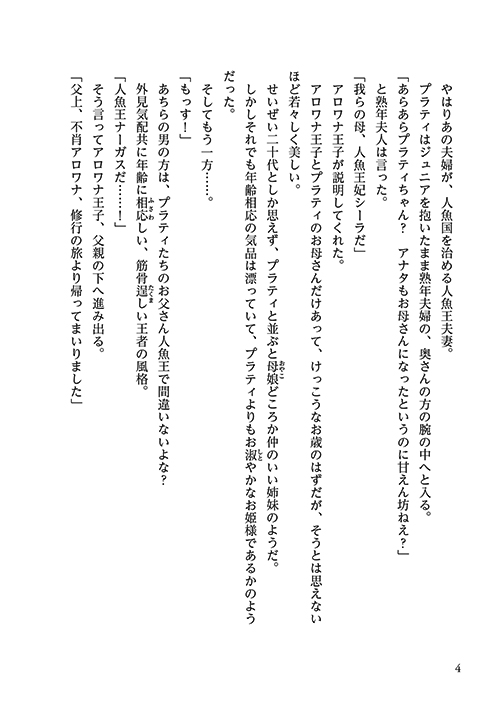 やはりあの夫婦が、人魚国を治める人魚王夫妻。
プラティはジュニアを抱いたまま熟年夫婦の、奥さんの方の腕の中へと入る。
「あらあらプラティちゃん？　アナタもお母さんになったというのに甘えん坊ねえ？」
と熟年夫人は言った。
「我らの母、人魚王妃シーラだ」
アロワナ王子が説明してくれた。
アロワナ王子とプラティのお母さんだけあって、けっこうなお歳のはずだが、そうとは思えない
ほど若々しく美しい。
せいぜい二十代としか思えず、プラティと並ぶと母娘おやこどころか仲のいい姉妹のようだ。
しかしそれでも年齢相応の気品は漂っていて、プラティよりもお淑しとやかなお姫様であるかのよう
だった。
そしてもう一方……。
「もっす！」
あちらの男の方は、プラティたちのお父さん人魚王で間違いないよな？
外見気配共に年齢に相応ふさわしい、筋骨逞たくましい王者の風格。
「人魚王ナーガスだ……！」
そう言ってアロワナ王子、父親の下へ進み出る。
「父上、不肖アロワナ、修行の旅より帰ってまいりました」
4